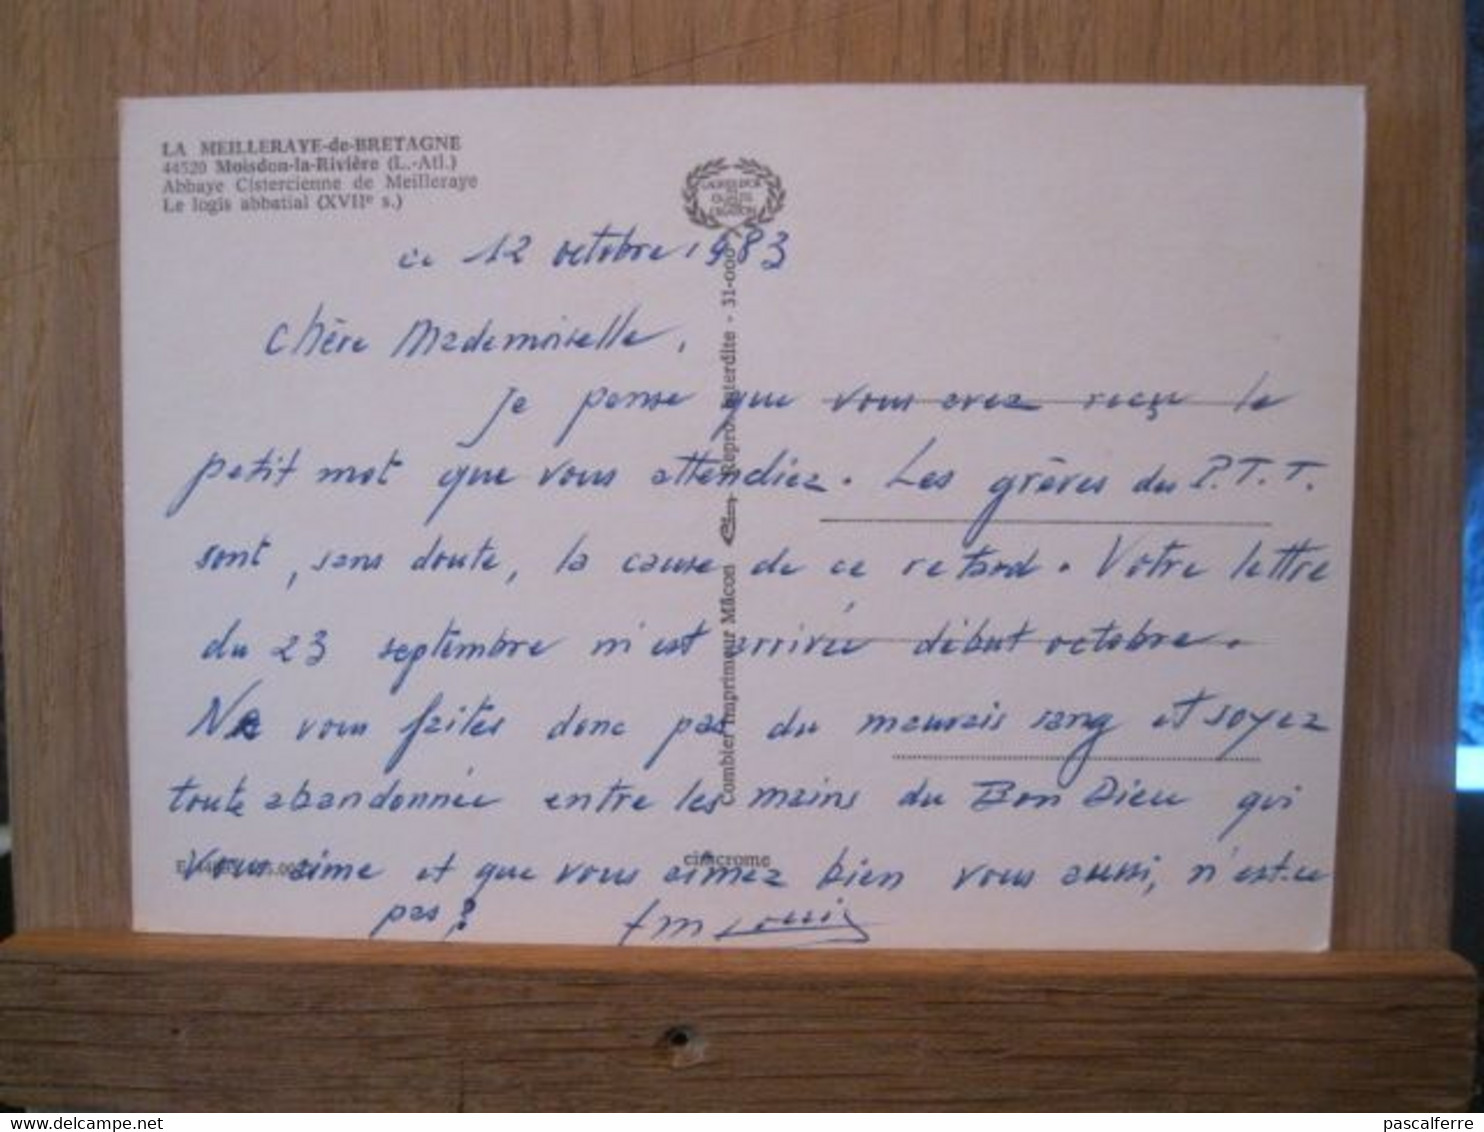 LA MEILLERAYE-de-BRETAGNE
44520 Moisdon-la-Rivière (L.-Atl.)
Abbaye Cistercienne de Meilleraye
Le logis abbatial (XVIIe s.)
ce 12 octobre 1983
Chère Mademoiselle,
Je pense que vous avez reçu le
petit mot que vous attendiez. Les grèves des P.T.T.
sont, sans doute, la cause de ce retard. Votre lettre
du 23 septembre m'est arrivée début octobre.
Ne vous faites donc pas du mauvais sang et soyez
toute abandonnée entre les mains du Bon Dieu qui
vous aime et que vous aimez bien vous aussi, n'est-ce
pas?
fm Louis
Combier Imprimeur Mâcon Cim Repro. interdite - 31-000
cimcrome
pascalferre